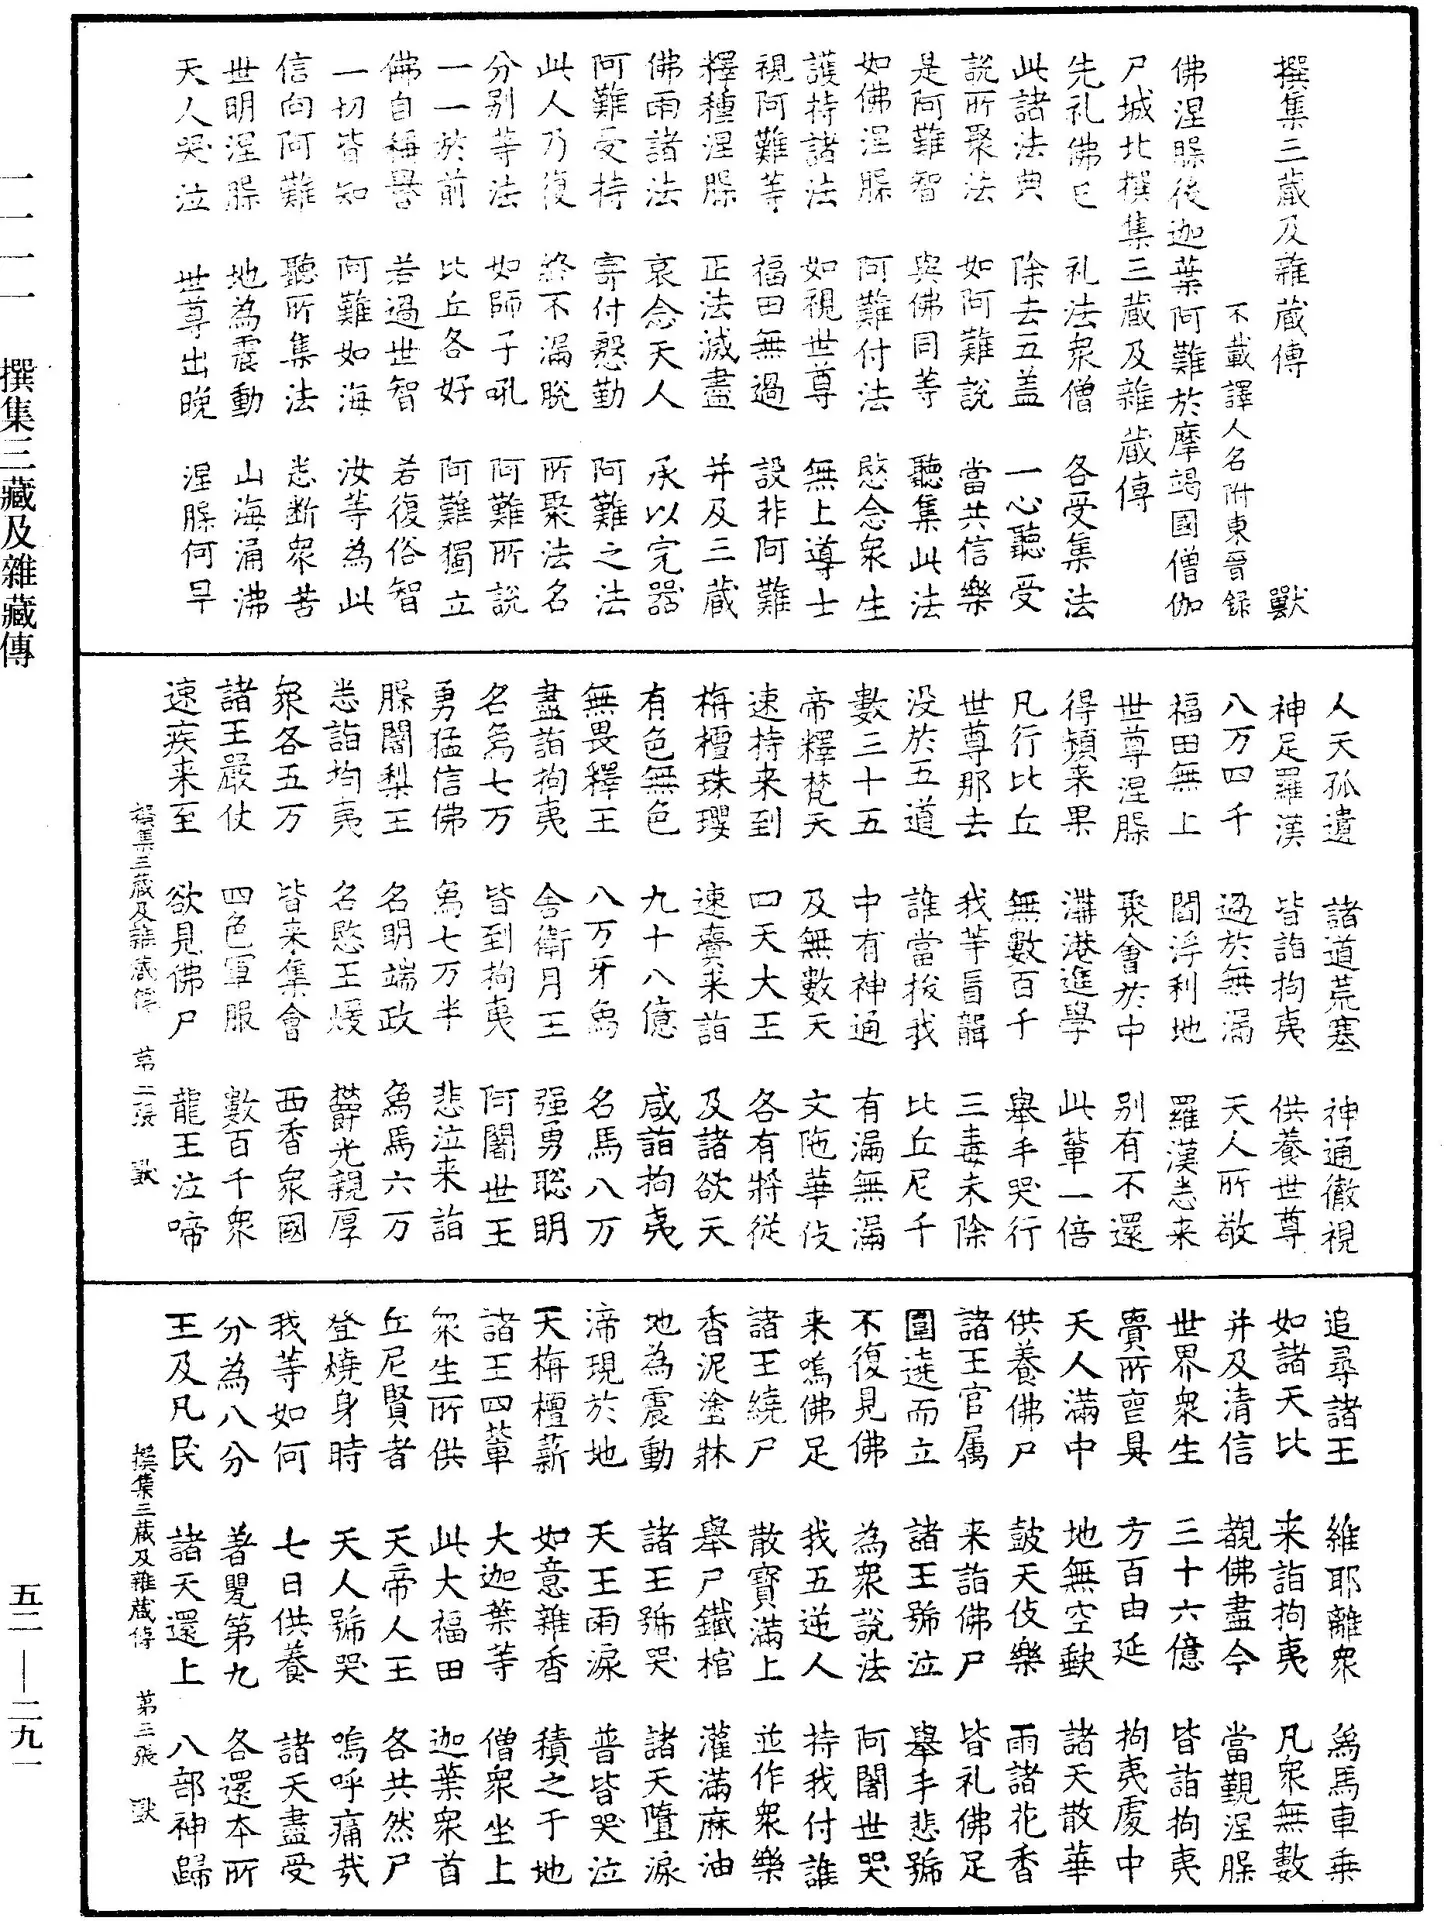 撰集三藏及雜藏傳　獸
不載譯人名附東晉録
佛涅槃後迦葉阿難於摩竭國僧伽
尸城北撰集三藏及雜藏傳
先礼佛已　礼法衆僧　各受集法
此諸法典　除去五盖　一心聽受
説所聚法　如阿難説　當共信樂
是阿難智　與佛同等　聽集此法
如佛涅槃　阿難付法　愍念衆生
護持諸法　如視世尊　無上導士
視阿難等　福田無過　設非阿難
釋種涅槃　正法滅盡　并及三藏
佛雨諸法　哀念天人　承以完器
阿難受持　寄付慇勤　阿難之法
此人乃復　終不漏脫　所聚法名
分别等法　如師子吼　阿難所説
一一於前　比丘各好　阿難獨立
佛自稱譽　若過世智　若復俗智
一切皆知　阿難如海　汝等為此
信向阿難　聽所集法　悉斷衆苦
世明涅槃　地為震動　山海涌沸
天人哭泣　世尊出晚　涅槃何早
人天孤遺　諸道荒塞　神通徹視
神足羅漢　皆詣拘夷　供養世尊
八万四千　過於無漏　天人所敬
福田無上　閻浮利地　羅漢悉来
世尊涅槃　聚會於中　别有不還
得頻来果　溝港進學　此輩一倍
凡行比丘　無數百千　舉手哭行
世尊那去　我等盲聾　三毒未除
没於五道　誰當拔我　比丘尼千
數三十五　中有神通　有漏無漏
帝釋梵天　及無數天　文陁華伎
速持来到　四天大王　各有將從
栴檀珠瓔　速賫来詣　及諸欲天
有色無色　九十八億　咸詣拘夷
無畏釋王　八万牙象　名馬八万
盡詣拘夷　舍衛月王　强勇聡明
名象七万　皆到拘夷　阿闍世王
勇猛信佛　象七万半　悲泣来詣
槃闍梨王　名明端政　象馬六万
悉詣拘夷　名愍王煖　欝光親厚
衆各五万　皆来集會　西香衆國
諸王嚴仗　四色軍服　數百千衆
速疾来至　欲見佛尸　龍王泣啼
撰集三藏及雜藏傳　第二張　獸
追尋諸王　維耶離衆　象馬車乗
如諸天比　来詣拘夷　凡衆無數
并及清信　覩佛盡今　當觀涅槃
世界衆生　三十六億　皆詣拘夷
賷所㽵具　方百由延　拘夷處中
天人滿中　地無空缺　諸天散華
供養佛尸　鼓天伎樂　雨諸花香
諸王官属　来詣佛尸　皆礼佛足
圍遶而立　諸王號泣　舉手悲號
不復見佛　為衆説法　阿闍世哭
来嗚佛足　我五逆人　持我付誰
諸王繞尸　散寶滿上　並作衆樂
香泥塗牀　舉尸鐵棺　灌滿麻油
地為震動　諸王號哭　諸天墮淚
渧現於地　天王雨淚　普皆哭泣
天栴檀薪　如意雜香　積之于地
諸王四輩　大迦葉等　僧衆坐上
衆生所供　此大福田　迦葉衆首
丘尼賢者　天帝人王　各共然尸
登燒身時　天人號哭　嗚呼痛哉
我等如何　七日供養　諸天盡受
分為八分　著甖第九　各還本所
王及凡民　諸天還上　八部神歸
撰集三藏及雜藏傳　第三張　獸
撰集三藏及雜藏傳
五二——二九一